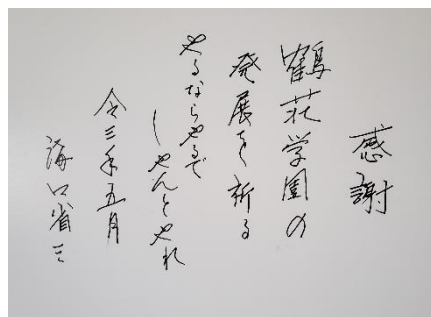 感謝
鶴荘学園の
発展を祈る
やるならやるで
しゃんとやれ
令三年五月
海口省三